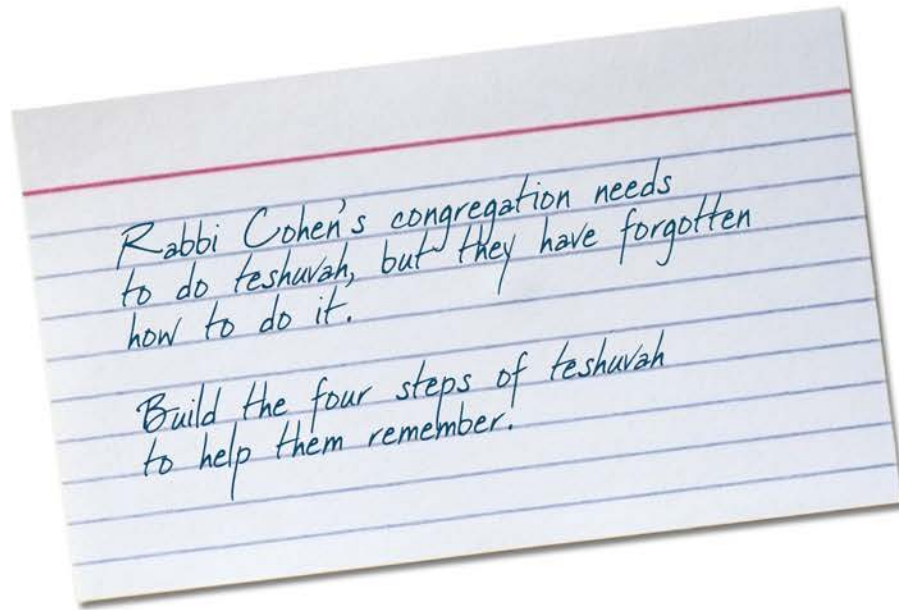 Rabbi Cohen's congregation needs
to do teshuvah, but they have forgotten
how to do it.
Build the four steps of teshuvah
to help them remember.